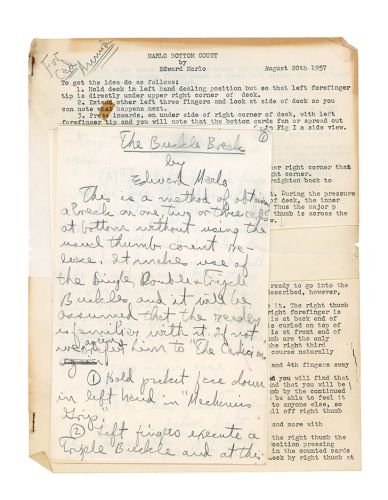 For
MARLO BOTTOM COUNT
by
Edward Marlo August 20th 1957
To get the idea do as follows:
1. Hold deck in left hand dealing position but so that left forefinger
tip is directly under upper right corner of deck.
2. Extend other left three fingers and look at side of deck so you
can note what happens next.
3. Press inwards, on under side of right corner of deck, with left
forefinger tip and you will note that the bottom cards fan or spread out
in Fig I a side view.
The Buckle Break
by
Edward Marlo
This is a method of obtaining
a break on one, two or three cards
at bottom without using the
usual thumb count re-
lease. It makes use of
the Single, Double & Triple
Buckles and it will be
assumed that the reader
is familiar with it. If not
we refer him to "The Cardician"
① Hold packet face down
in left hand in Mechanics
Grip.
② Left fingers execute a
Triple Buckle and at the
①
er right corner that
ht corner.
raighten back to
. During the pressure
of deck, the inner
Thus the major p
thumb is across the
w.
ready to go into the
described, however,
e it. The right thumb
right forefinger is
is at back end of
is curled on top of
is at front end of
umb are the only
the right third
course naturally
and 4th fingers away
nd you will find that
nd that you will be
umb by the continued
be able to feel it
to anyone else, so
ll off right thumb
and more with
the right thumb the
position pressing
in the counted cards
deck by right thumb at